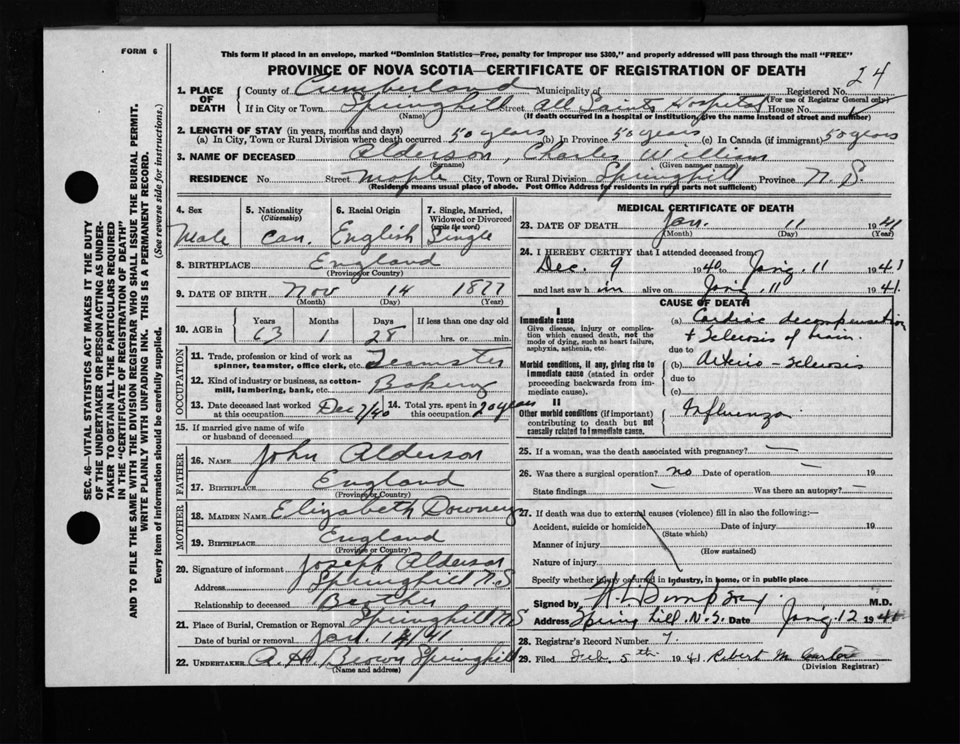 FORM 6
This form if placed in an envelope, marked "Dominion Statistics—Free, penalty for improper use $300," and properly addressed will pass through the mail "FREE"
PROVINCE OF NOVA SCOTIA—CERTIFICATE OF REGISTRATION OF DEATH
24
1. PLACE OF DEATH County of Cumberland Municipality of Registered No.
(For use of Registrar General only)
If in City or Town Springhill Street All Saints Hospital House No.
(Name) (If death occurred in a hospital or institution, give the name instead of street and number)
2. LENGTH OF STAY (in years, months and days)
(a) In City, Town or Rural Division where death occurred 50 years (b) In Province 50 years (c) In Canada (if immigrant) 50 years
3. NAME OF DECEASED Alderson, Charles William
(Surname) (Given name or names)
RESIDENCE No Street Maple City, Town or Rural Division Springhill Province N.S.
(Residence means usual place of abode. Post Office Address for residents in rural parts not sufficient)
4. Sex 5. Nationality (Citizenship) 6. Racial Origin 7. Single, Married, Widowed or Divorced (write the word)
Male Can. English Single
8. BIRTHPLACE England
(Province or Country)
9. DATE OF BIRTH Nov 14 1877
(Month) (Day) (Year)
10. AGE in Years Months Days If less than one day old
63 1 28 hrs. or min.
OCCUPATION
11. Trade, profession or kind of work as spinner, teamster, office clerk, etc. Teamster
12. Kind of industry or business, as cotton-mill, lumbering, bank, etc. Bakery
13. Date deceased last worked at this occupation Dec 7/40 14. Total yrs. spent in this occupation 20 years
15. If married give name of wife or husband of deceased
FATHER
16. NAME John Alderson
17. BIRTHPLACE England
(Province or Country)
MOTHER
18. MAIDEN NAME Elizabeth Downey
19. BIRTHPLACE England
(Province or Country)
20. Signature of informant Joseph Alderson
Address Springhill N.S
Relationship to deceased Brother
21. Place of Burial, Cremation or Removal Springhill N.S
Date of burial or removal Jan. 14/41
22. UNDERTAKER A. H. Brown Springhill
(Name and address)
MEDICAL CERTIFICATE OF DEATH
23. DATE OF DEATH Jan. 11 1941
(Month) (Day) (Year)
24. I HEREBY CERTIFY that I attended deceased from
Dec. 9 1940 to Jan'y. 11 1941
and last saw him alive on Jan'y. 11 1941.
CAUSE OF DEATH
I
Immediate cause (a) Cardiac decompensation
Give disease, injury or complication which caused death, not the mode of dying, such as heart failure, asphyxia, asthenia, etc. + Sclerosis of brain.
due to
Morbid conditions, if any, giving rise to immediate cause (stated in order proceeding backwards from immediate cause). (b) Arterio Sclerosis
due to
(c)
II
Other morbid conditions (if important) contributing to death but not causally related to immediate cause. Influenza
25. If a woman, was the death associated with pregnancy? —
26. Was there a surgical operation? no Date of operation — 19
State findings — Was there an autopsy? —
27. If death was due to external causes (violence) fill in also the following:—
Accident, suicide or homicide? Date of injury 19
(State which)
Manner of injury
(How sustained)
Nature of injury
Specify whether injury occurred in industry, in home, or in public place
Signed by M.D.
Address Spring hill. N.S. Date Jan'y. 12 194
28. Registrar's Record Number 7.
29. Filed Feb. 5th 1941 Robert M.
(Division Registrar)
SEC. 46—VITAL STATISTICS ACT MAKES IT THE DUTY
OF THE UNDERTAKER OR PERSON ACTING AS UNDER-
TAKER TO OBTAIN ALL THE PARTICULARS REQUIRED
IN THE "CERTIFICATE OF REGISTRATION OF DEATH"
AND TO FILE THE SAME WITH THE DIVISION REGISTRAR WHO SHALL ISSUE THE BURIAL PERMIT.
WRITE PLAINLY WITH UNFADING INK. THIS IS A PERMANENT RECORD.
Every item of information should be carefully supplied. (See reverse side for instructions.)